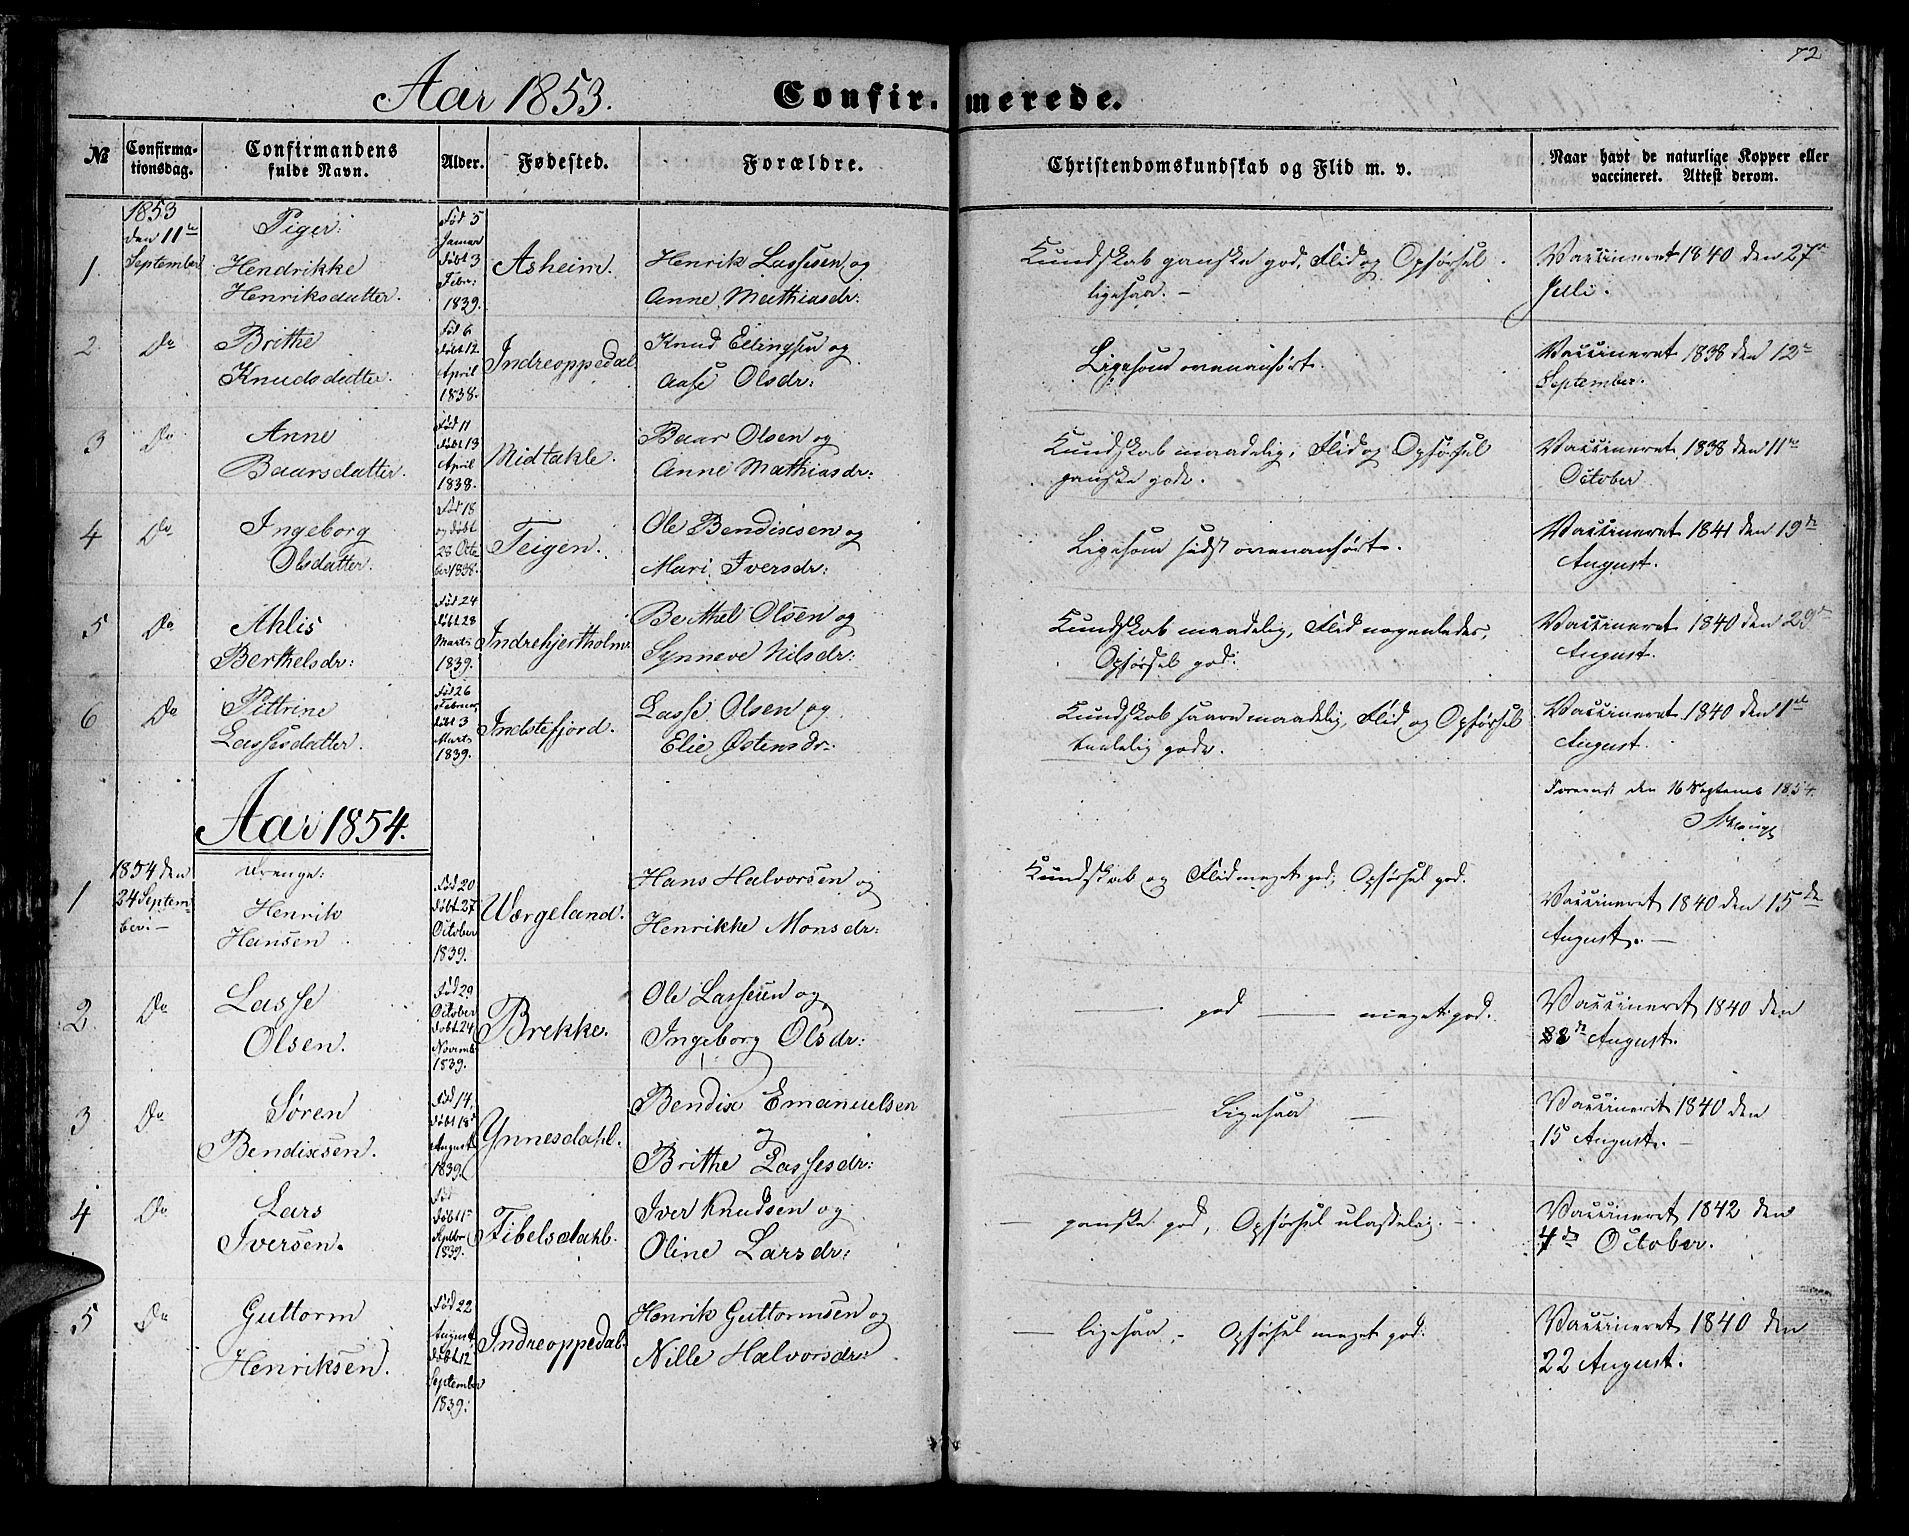 72
Aar 1853.
Confirmerede.
№
Confirma-
tionsdag.
Confirmandens
fulde Navn.
Alder.
Fødested.
Forældre.
Christendomskundskab og Flid m. v.
Naar havt de naturlige Kopper eller
vaccineret. Attest derom.
1
1853
den 11te
September
Piger:
Hendrikke
Henriksdatter.
Fød 5
Januar
døbt 3
Febr:
1839.
Asheim.
Henrik Lassesen og
Anne Mathiasdr:
Kundskab ganske god, Flid og Opførsel
ligesaa. –
Vaccineret 1840 den 27de
Juli.
2.
Do
Brithe
Knudsdatter.
Fød 6
døbt 12
April
1838.
Indreoppedal
Knud Ellingsen og
Aase Olsdr:
Ligesom ovenanført.
Vaccineret 1838 den 12te
September.
3
Do
Anne
Baarsdatter.
Fød 11
døbt 13
April
1838.
Midtakle.
Baar Olsen og
Anne Mathiasdr:
Kundskab maadelig, Flid og Opførsel
ganske gode.
Vaccineret 1838 den 11te
October
4
Do
Ingeborg
Olsdatter.
Fød 18
og døbt
28 Octo
ber 1838.
Teigen.
Ole Bendixsen og
Mari Iversdr:
Ligesom sidst ovenanført.
Vaccineret 1841 den 19de
August.
5
Do
Ahlis
Berthelsdr:
Fød 24
døbt 28
Marts
1839.
Indrehjertholm.
Berthel Olsen og
Synneve Nilsdr:
Kundskab maadelig, Flid nogenledes,
Opførsel god.
Vaccineret 1840 den 29de
August.
6
Do
Pittrine
Lassesdatter.
Fød 26
Februar
døbt 3
Marts
1839.
Indstefjord.
Lasse Olsen og
Elie Østensdr.
Kundskab saare maadelig, Flid og Opførsel
taalelig gode.
Vaccineret 1840 den 1ste
August.
den 16 Septemb 1854.
Aar 1854.
1
1854 den
24 Septem-
ber. –
Drenge:
Henrik
Hansen
Fød 20
døbt 27
October
1839.
Værgeland.
Hans Halvorsen og
Henrikke Monsdr:
Kundskab og Flid meget god, Opførsel god.
Vaccineret 1840 den 15de
August. –
2.
Do
Lasse
Olsen.
Fød 29
October
døbt 24
Novemb
1839.
Brekke.
Ole Lassesen og
Ingeborg Olsdr:
— god — meget god.
Vaccineret 1840 den
August.
3
Do
Søren
Bendixsen.
Fød 14,
døbt 18de
August
1839.
Ynnesdahl.
Bendix Emanuelsen
og
Brithe Lassesdr:
— Ligesaa —
Vaccinerit 1840 den
15 August. –
4
Do
Lars
Iversen.
Fød
døbt 1ste
1839.
Fibelsdahl.
Iver Knudsen og
Oline Larsdr:
— ganske god, Opførsel ulastelig. –
Vaccineret 1842 den
4de October.
5
Do
Guttorm
Henriksen.
Fød 22
August,
døbt 12
September
1839:
Indreoppedal.
Henrik Guttormsen og
Nille Halvorsdr:
— ligesaa, – Opførsel meget god.
Vaccineret 1840 den
22 August.